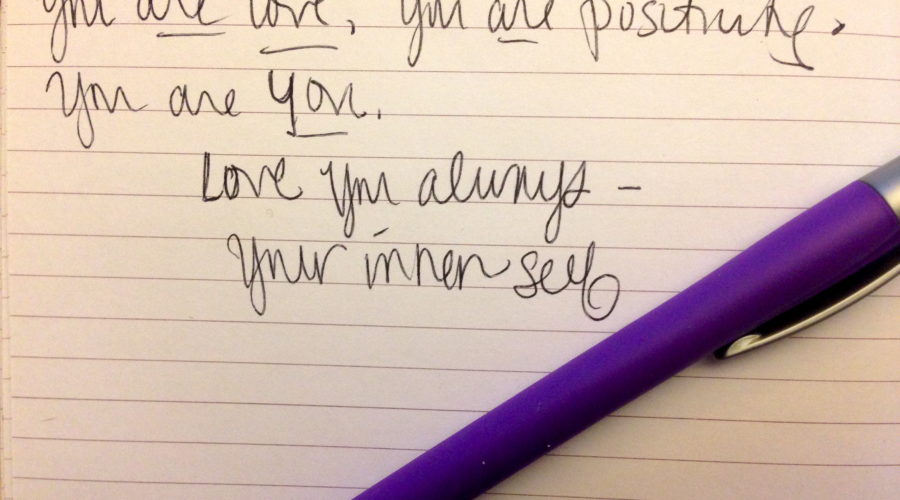 you are love, you are positivity.
You are you.
Love you always -
your inner self